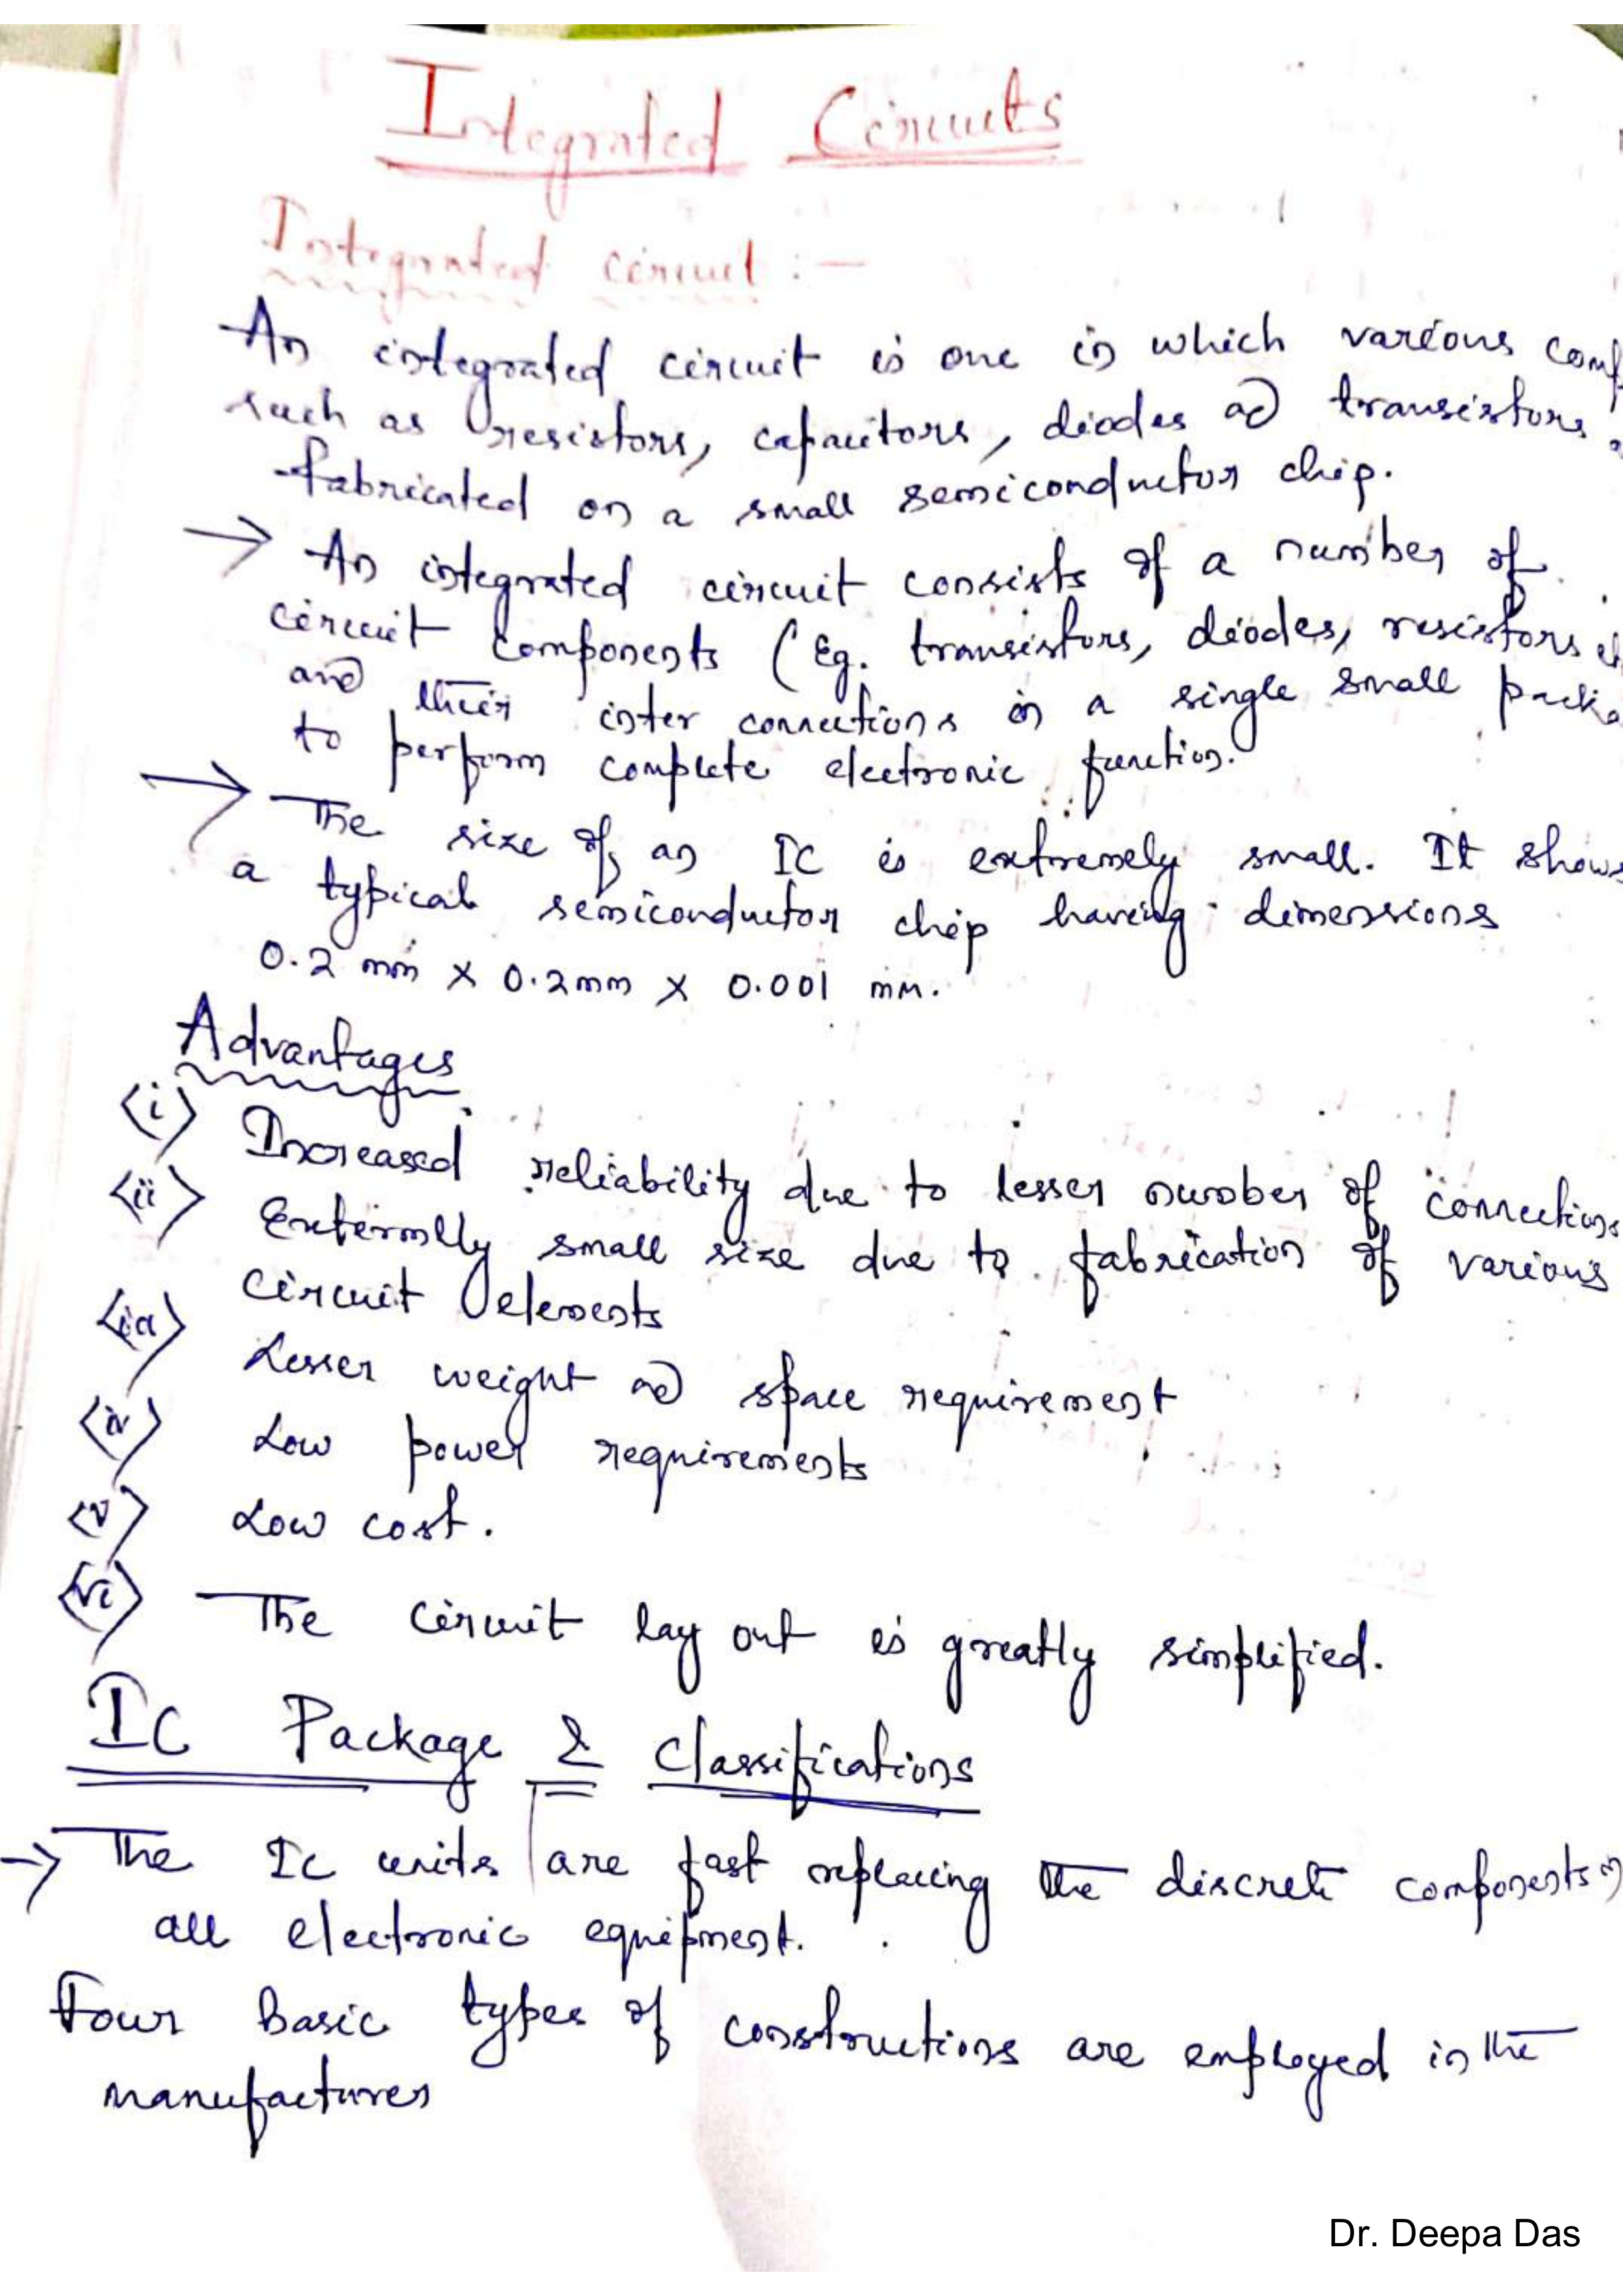 Integrated Circuits
Integrated circuit :-
An integrated circuit is one in which various comp
such as resistors, capacitors, diodes and transistors
fabricated on a small semiconductor chip.
→ An integrated circuit consists of a number of
circuit components (Eg. transistors, diodes, resistors
and their inter connections in a single small packa
to perform complete electronic function.
→ The size of an IC is extremely small. It shows
a typical semiconductor chip having dimensions
0.2 mm × 0.2mm × 0.001 mm.
Advantages
<i> Increased reliability due to lesser number of connections
<ii> Extermlly small size due to fabrication of various
circuit elements
Lesser weight and space requirement
<iv> Low power requirements
<v> Low cost.
<vi> The circuit lay out is greatly simplified.
IC Package & Classifications
→ The IC units are fast replacing the discrete components
all electronic equipment.
Four basic types of constructions are employed in the
manufactures
Dr. Deepa Das